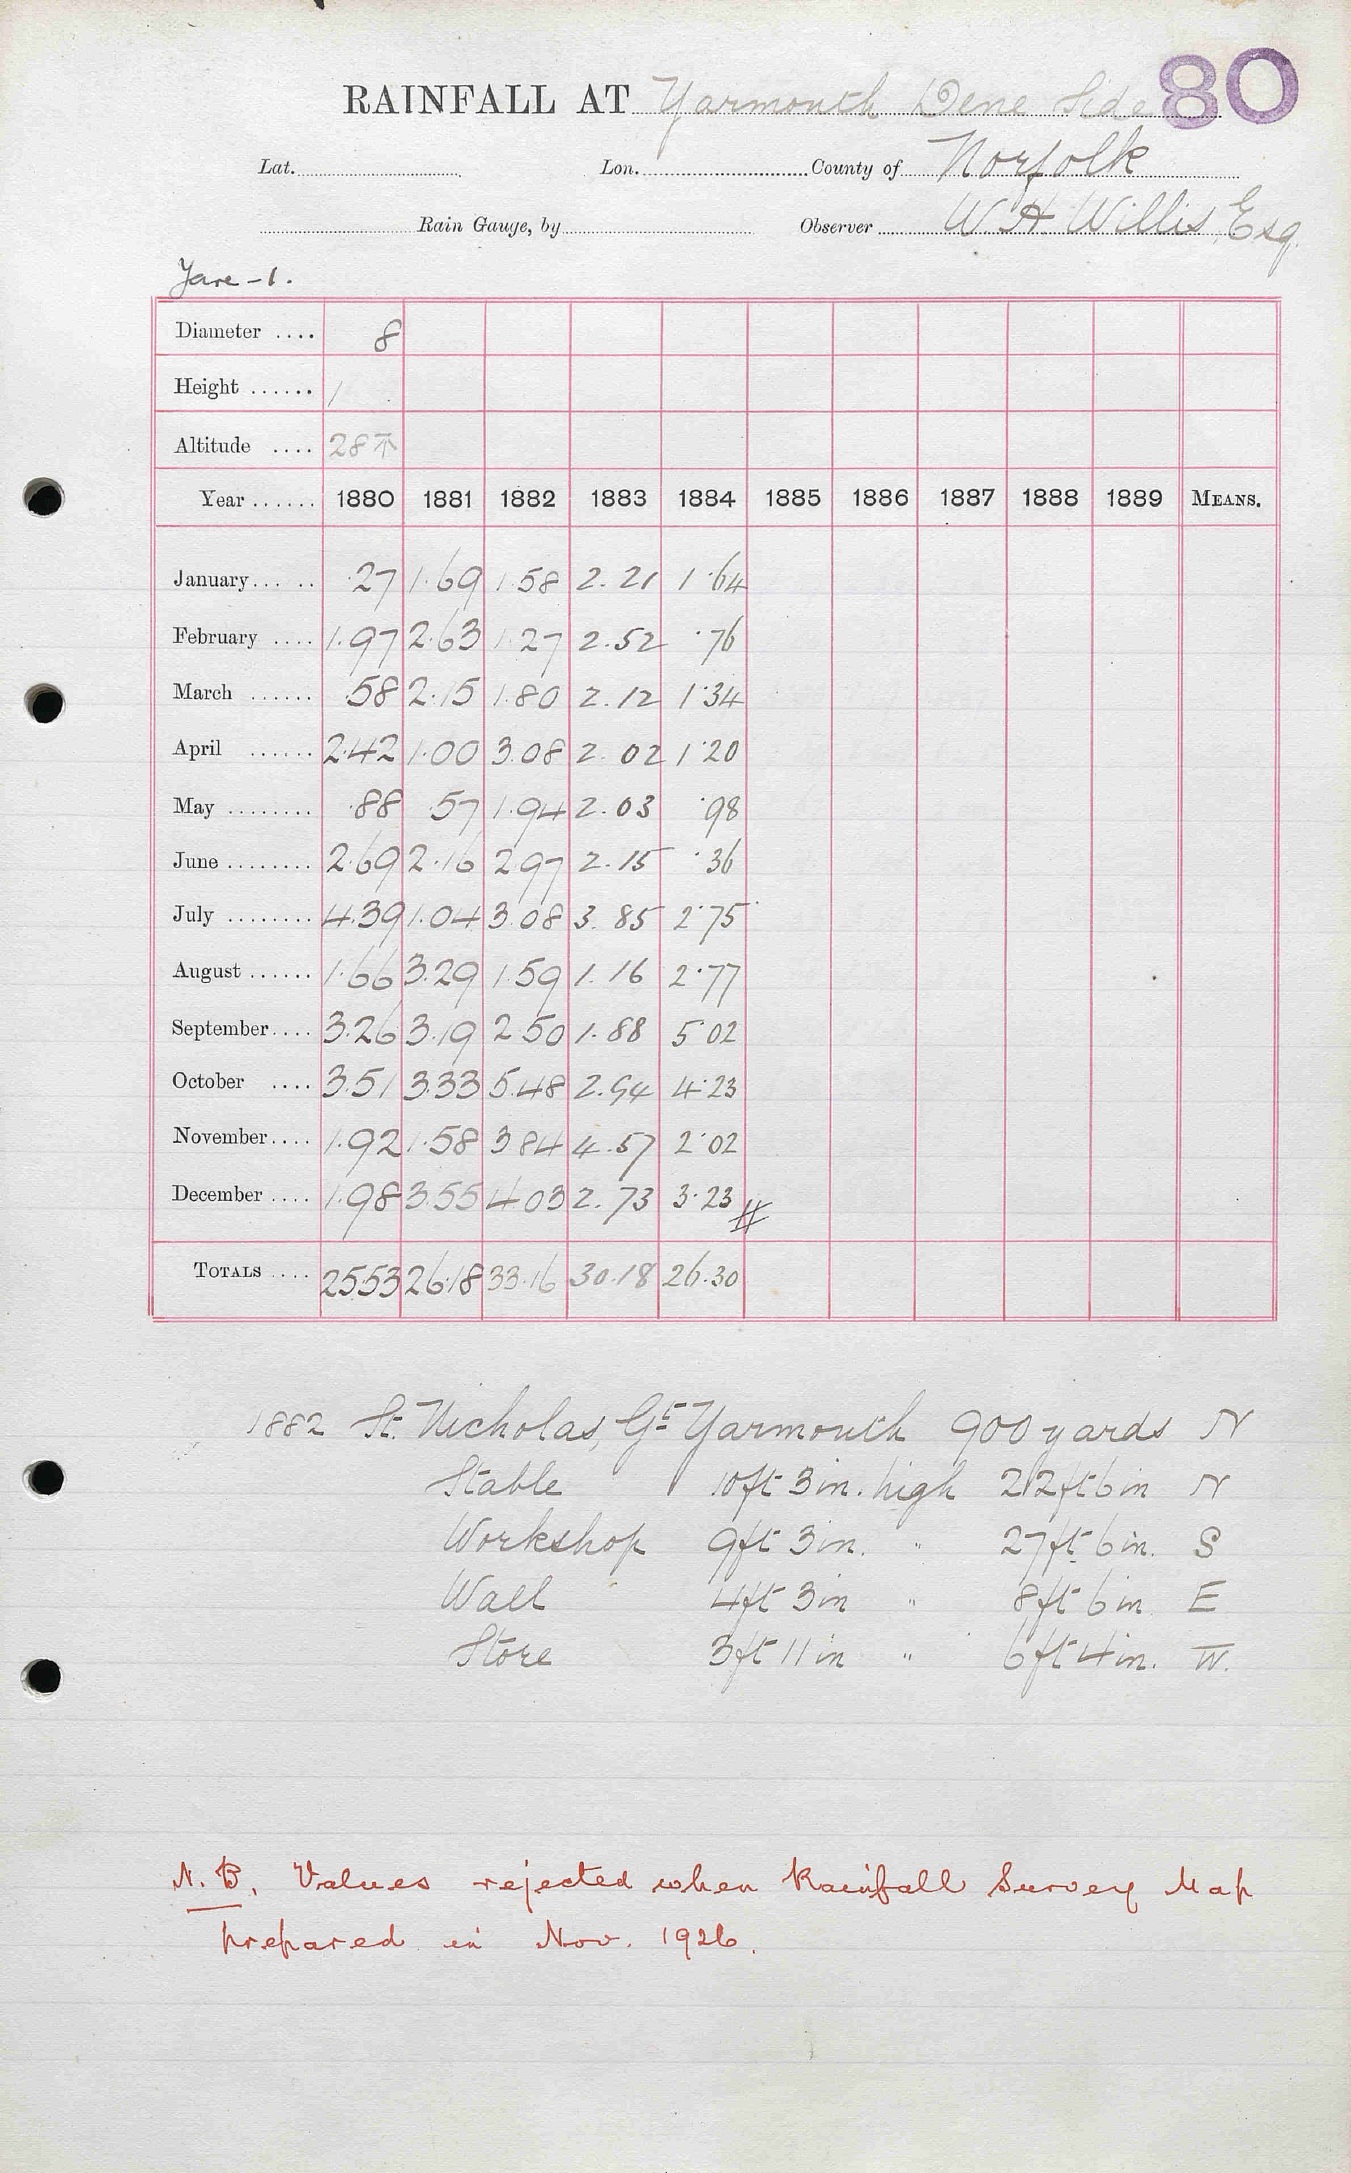 80
RAINFALL AT Yarmouth Dene Side
Lat. Lon. County of Norfolk
Rain Gauge, by Observer W H Willis, Esq.
Yare - 1.
Diameter .... 8
Height ...... 1
Altitude .... 28
Year ...... 1880 1881 1882 1883 1884 1885 1886 1887 1888 1889 MEANS.
January ... .. .27 1.69 1.58 2.21 1.64
February .... 1.97 2.63 1.27 2.52 .76
March ...... .58 2.15 1.80 2.12 1.34
April ...... 2.42 1.00 3.08 2.02 1.20
May ........ .88 .57 1.94 2.03 .98
June ........ 2.69 2.16 2.97 2.15 .36
July ........ 4.39 1.04 3.08 3.85 2.75
August ...... 1.66 3.29 1.59 1.16 2.77
September .... 3.26 3.19 2.50 1.88 5.02
October .... 3.51 3.33 5.48 2.94 4.23
November .... 1.92 1.58 3.84 4.57 2.02
December .... 1.98 3.55 4.03 2.73 3.23 #
TOTALS .... 25.53 26.18 33.16 30.18 26.30
1882 St. Nicholas, Gt Yarmouth 900 yards N
Stable 10ft 3in. high 22ft 6in N
Workshop 9ft 3in. " 27ft 6in. S
Wall 4ft 3in " 8ft 6in E
Store 3ft 11in " 6ft 4in. W.
N.B. Values rejected when Rainfall Survey Map
prepared in Nov. 1926.